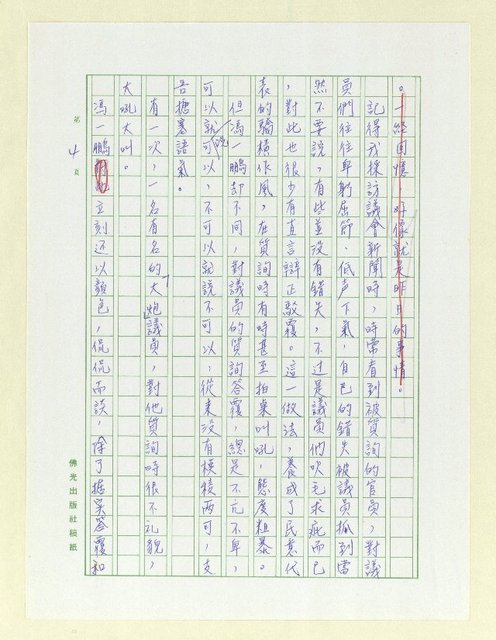 。一經回憶，好像就是昨日的事情。
記得我採訪議會新聞時，時常看到被質詢的官員，對議
員們往往卑躬屈節、低声下氣，自己的錯失被議員抓到當
然不要說，有些並沒有錯失，不过是議員們吹毛求疵而已
，對此也很少有直言辯正駁覆。這一做法，養成了民意代
表的驕橫作風，在質詢時有時甚至拍桌叫吼，態度粗暴。
但馮一鵬却不同，對議員的質詢答覆，總是不亢不卑，
可以就說可以，不可以就說不可以，從來沒有模稜兩可，支
吾搪塞語氣。
有一次，一名有名的「大炮」議員，對他質詢時很不礼貌，
大吼大叫。
馮一鵬立刻还以顏色，侃侃而談，除了據实答覆和
第4頁
佛光出版社稿紙